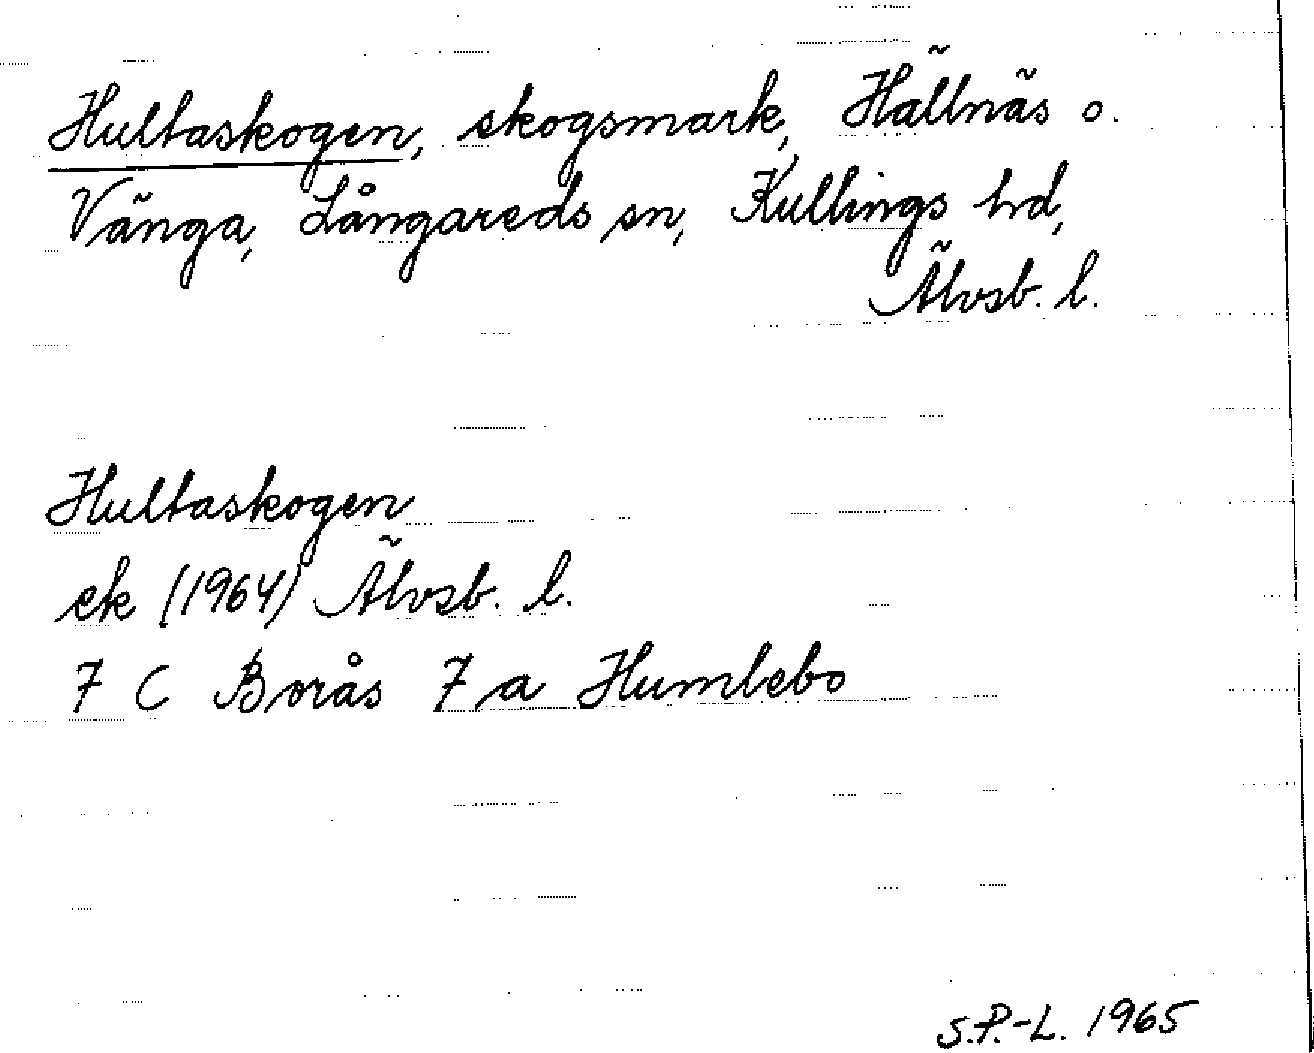 Hultaskogen, skogsmark, Hällnäs o.
Vänga, Långareds sn, Kullings hd,
Älvsb. l.
Hultaskogen
ek (1964) Älvsb. l.
7 C Borås 7 a Humlebo
S.P.-L. 1965